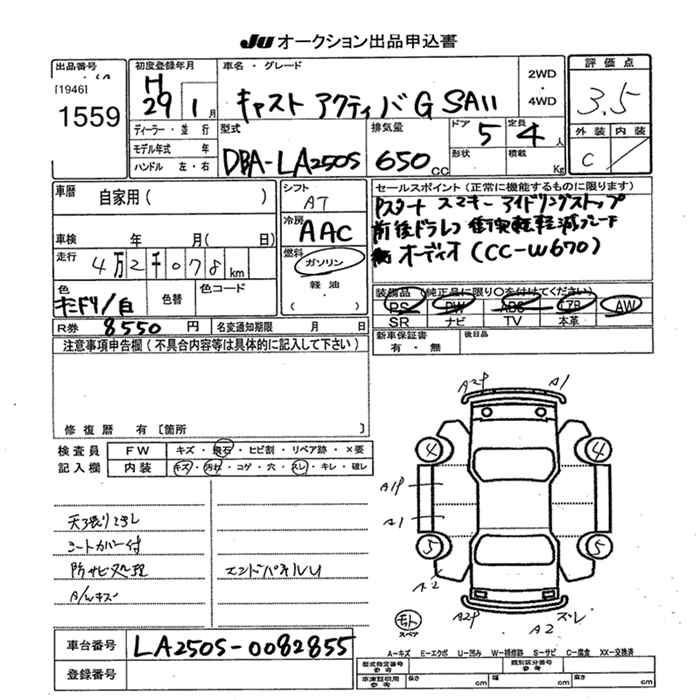 JU オークション出品申込書
出品番号
[1946]
1559
初度登録年月
H
29年 1月
車名・グレード
キャスト アクティバ G SAII
2WD
・
4WD
評価点
3.5
外装 内装
C
ディーラー・並行
モデル年式 年
ハンドル 左・右
型式
DBA-LA250S
排気量
650cc
ドア
5
形状
定員
4人
積載
Kg
車歴
自家用( )
車検 年 月( 日)
走行
4万2千078km
色
色替
色コード
R券 8550円 名変通知期限 月 日
シフト
AT
冷房
AAC
燃料
ガソリン
・
軽油
・
( )
セールスポイント(正常に機能するものに限ります)
Pスタート スマキー アイドリングストップ
前後ドラレコ 衝突軽減ブレーキ
オーディオ(CC-W670)
装備品(純正品に限り○を付けてください)
PS PW ABS エアB AW
SR ナビ TV 本革
新車保証書
有・無
後日品
注意事項申告欄(不具合内容等は具体的に記入して下さい)
修復歴 有〔箇所 〕
検査員
記入欄
FW キズ・飛石・ヒビ割・リペア跡・×要
内装 キズ・汚れ・コゲ・穴・スレ・キレ・破レ
天張りヨゴレ
シートカバー付
防サビ処理
A/Wキズ
エンドパネルU
A2P A1
4 4
A1P
A1
5 5
A2
A2P A2 ズレ
モト
スペア
車台番号 LA250S-0082855
登録番号
A-キズ E-エクボ U-凹み W-補修跡 S-サビ C-腐食 XX-交換済
型式指定番号
参考
類別区分番号
参考
車庫証明用
参考
長さ cm 幅 cm 高さ cm